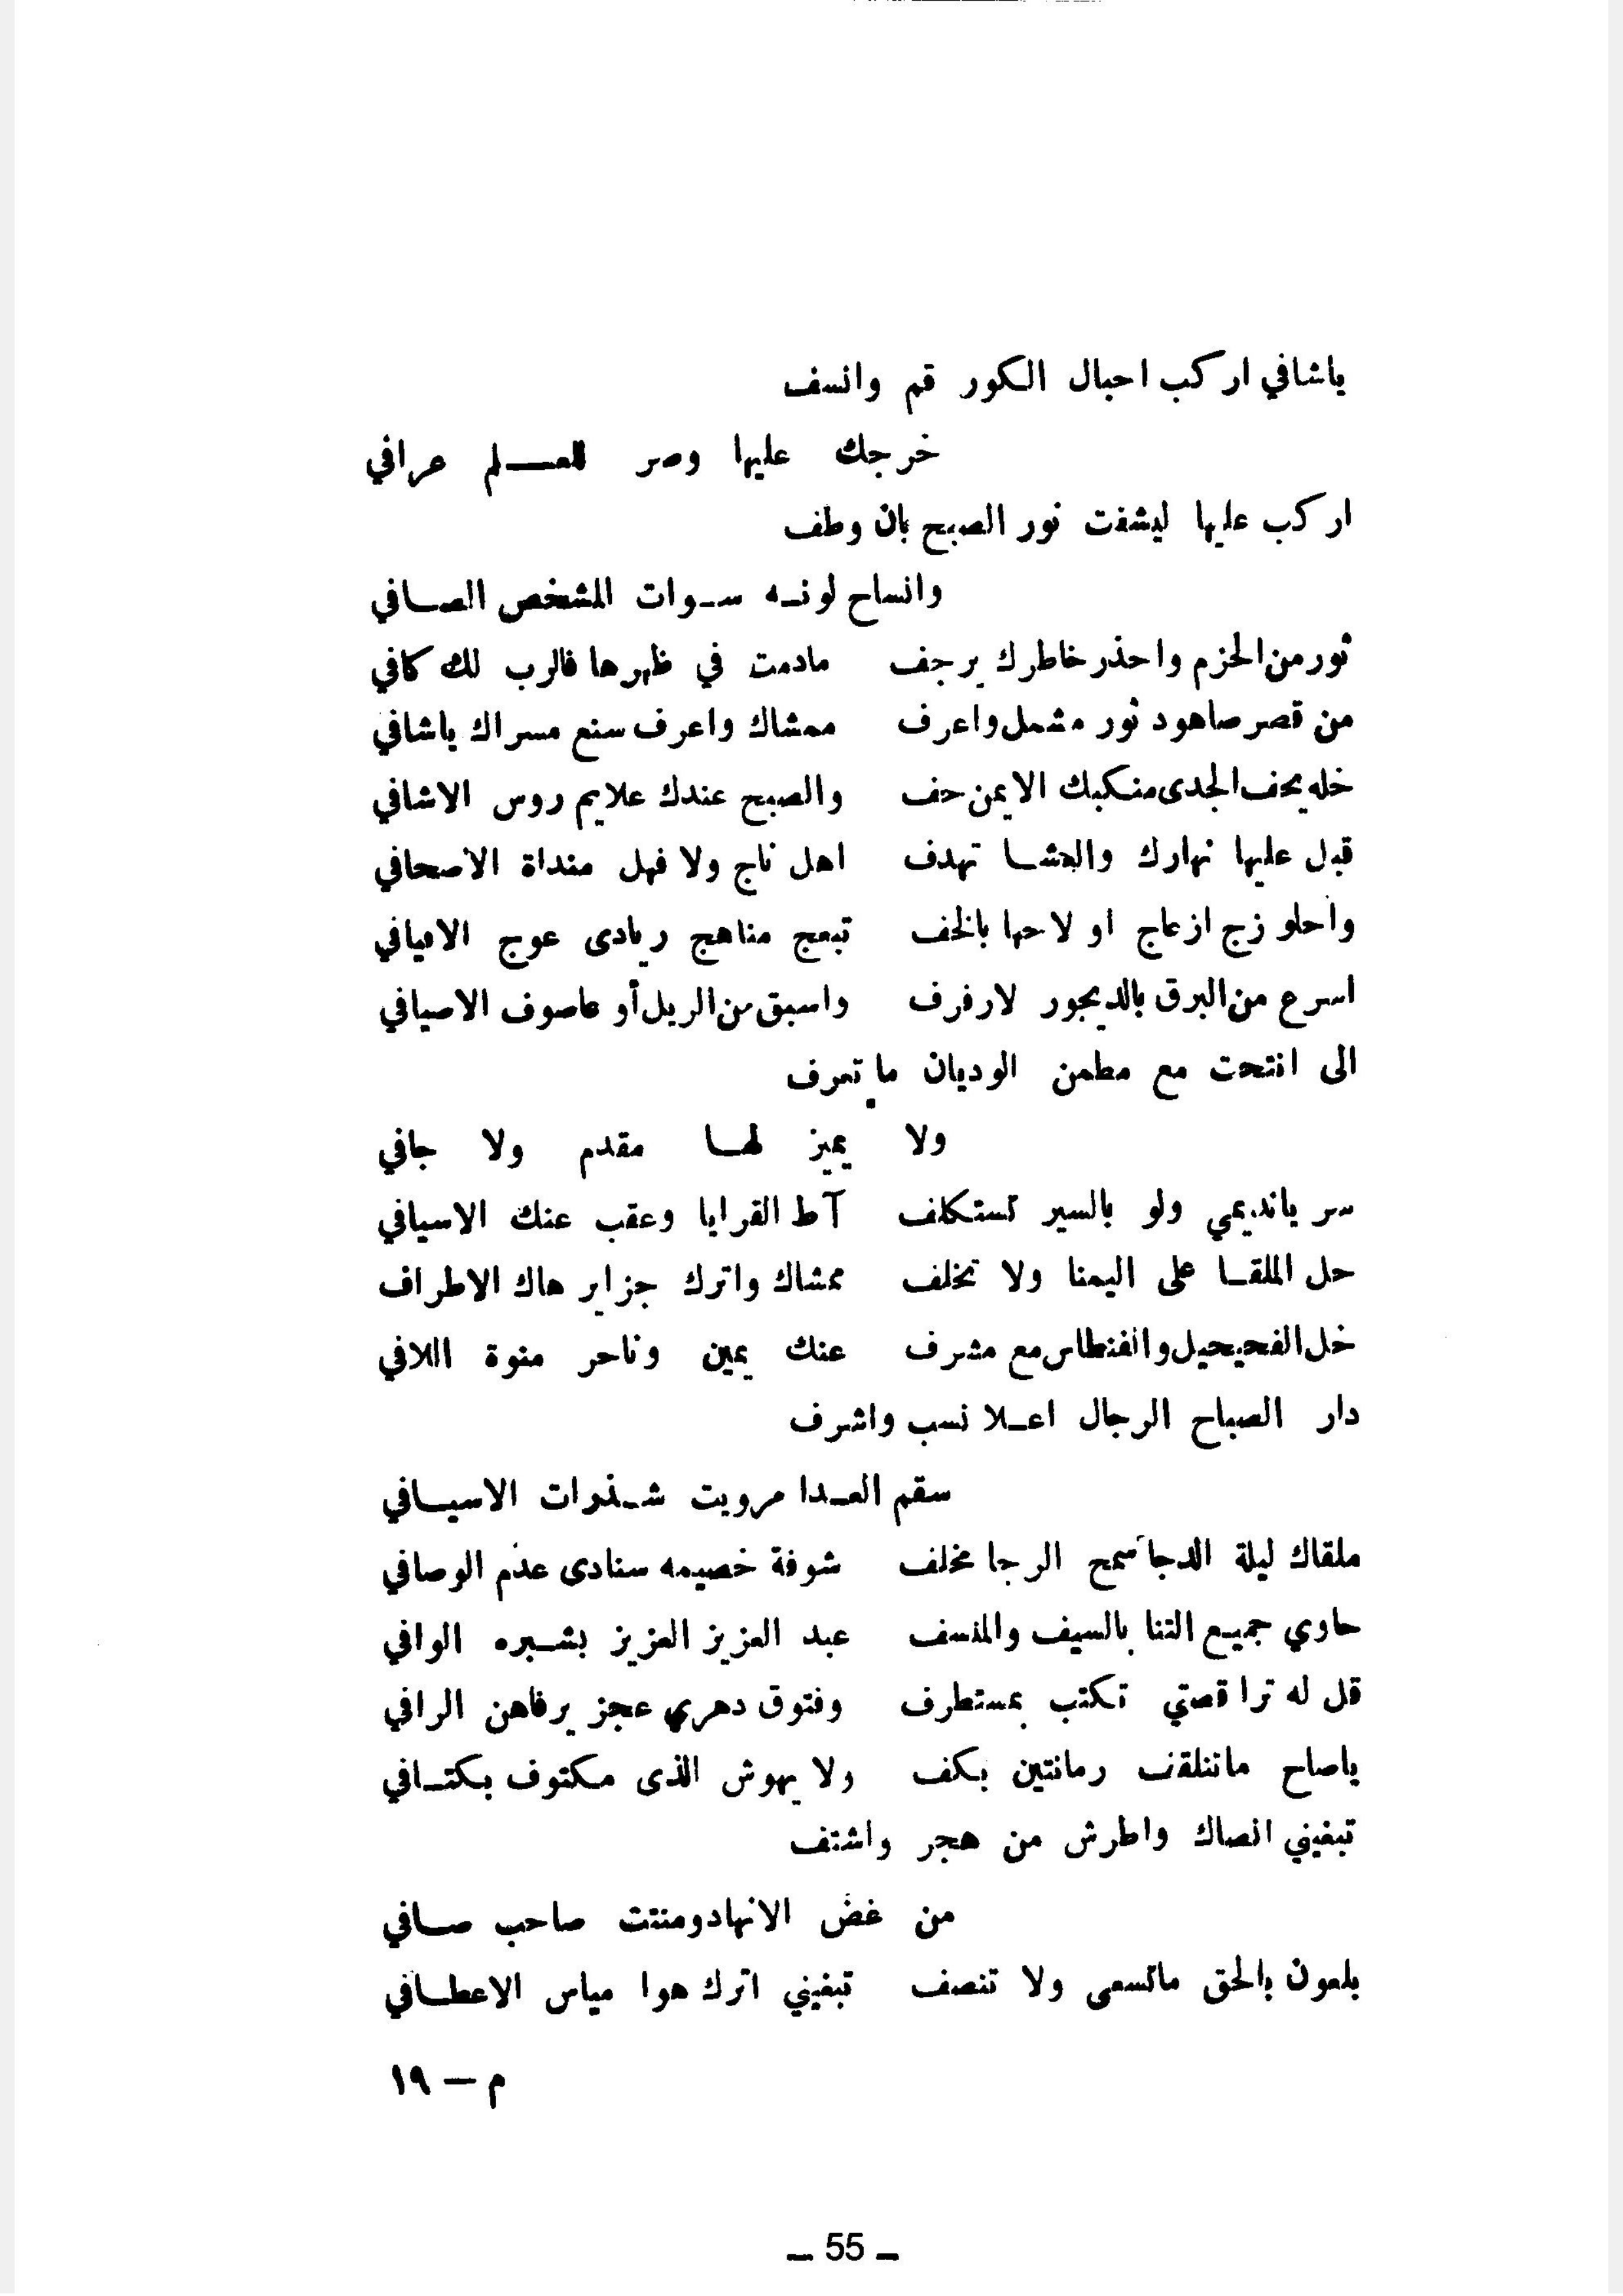 ياشافي اركب احبال الكور قم وانسف
خرجك عليها وصر للعـلم عرافي
اركب عليها ليشفت نور الصبح بان وطف
وانساح لونه سوات المشخص الصافي
ثور من الحزم واحذر خاطرك يرجف مادمت في ظهرها فالرب لك كافي
من قصر صاهود ثور مشمل واعرف ممشاك واعرف سنع مسراك ياشافي
خله يحف الجدى منكبك الايمن حف والصبح عندك علايم روس الاشافي
قبل عليها نهارك والعشا تهدف اهل ناج ولا فهل منداة الاصحافي
واحلو زج ازعاج او لاحها بالخف تبعج مناهج ريادى عوج الافيافي
اسرع من البرق بالديجور لارفرف واسبق من الريل أو عاصوف الاصيافي
الى انتحت مع مطمن الوديان ما تعرف
ولا يميز لها مقدم ولا جافي
سر يانديمي ولو بالسير تستكلف آط القرايا وعقب عنك الاسيافي
حل الملقا على اليمنا ولا تخلف ممشاك واترك جزاير هاك الاطراف
خل الفحيحيل والفنطاس مع مشرف عنك يمين وناحر منوة اللافي
دار الصباح الرجال اعلا نسب واشرف
سقم العدا مرويت شذرات الاسيافي
ملقاك ليلة الدجا سمح الرجا مخلف شوفة خصيمه سنادى عدم الوصافي
حاوي جميع الثنا بالسيف والمنسف عبد العزيز العزيز بشبره الوافي
قل له ترا قصتي تكتب بمستطرف وفتوق دهري عجز يرفاهن الرافي
ياصاح ماتنلقف رمانتين بكف ولا يهوش الذى مكتوف بكتافي
تبغيني انصاك واطرش من هجر واشتف
من غض الانهاد ومنتت صاحب صافي
بلعون بالحق ماتسعى ولا تنصف تبغيني اترك هوا مياس الاعطافي
م – ١٩
– 55 –